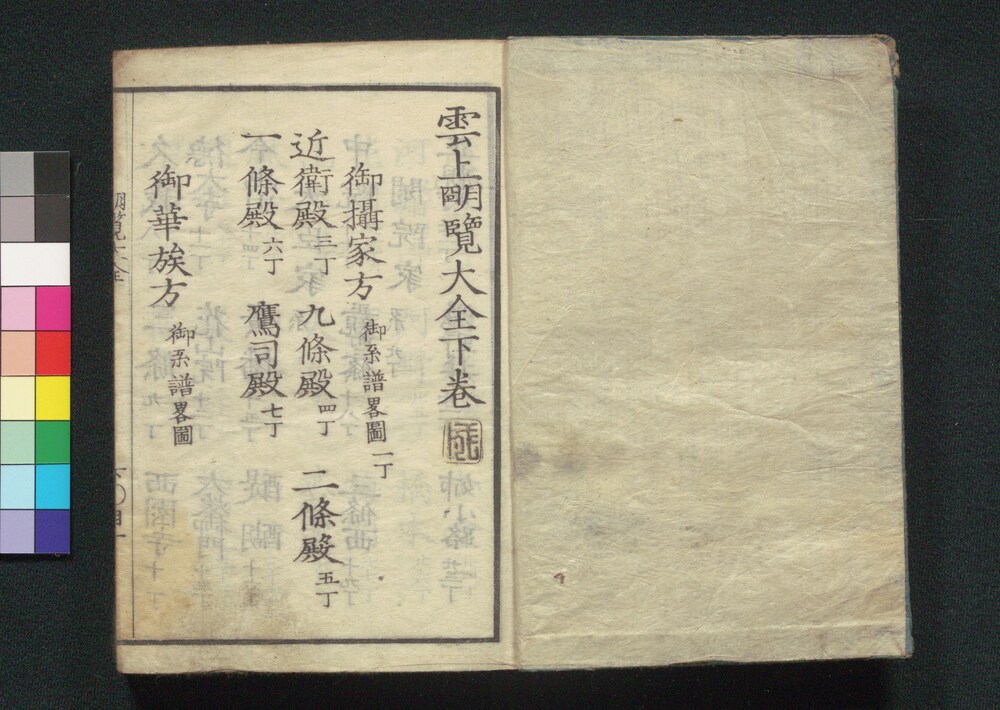 雲上明覽大全下卷
御攝家方 御系譜畧圖 一丁
近衛殿 三丁 九條殿 四丁 二條殿 五丁
一條殿 六丁 鷹司殿 七丁
御華族方 御系譜畧圖
明覧大全